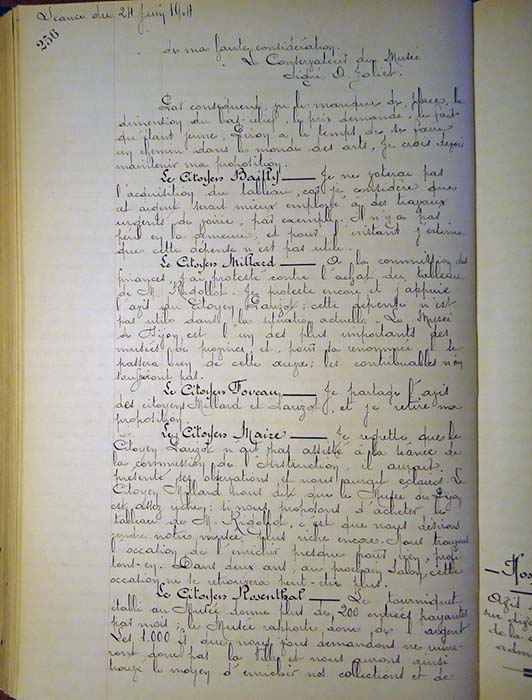 Séance du 24 Juin 1904
256
de ma haute considération.
Le Conservateur du Musée
Signé A. Joliet.
Par conséquent, vu le manque de place, la
dimension du bas-relief, le prix demandé, le fait
qu'étant jeune, a le temps de se faire
un chemin dans le monde des arts, je crois devoir
maintenir ma proposition.
Le Citoyen Bailly — Je ne voterai pas
l'acquisition du tableau, car je considère que
cet argent serait mieux employé à des travaux
urgents de voirie, par exemple. Il n'y a pas
péril en la demeure, et pour l'instant j'estime
que cette dépense n'est pas utile.
Le Citoyen Millard — A la commission des
finances j'ai protesté contre l'achat du tableau
de M. Rigollot. Je proteste encore et j'appuie
l'avis du Citoyen Lauzot; cette dépense n'est
pas utile dans la situation actuelle. Le Musée
de Dijon est l'un des plus importants des
musées de province, et, pour sa renommée il se
passera bien de cette œuvre; les contribuables n'en
souffriront pas.
Le Citoyen Foveau — Je partage l'avis
des citoyens Millard et Lauzot, et je retire ma
proposition.
Le Citoyen Maire — Je regrette que le
Citoyen Lauzot n'ait pas assisté à la séance de
la commission de l'Instruction, il aurait
présenté ses observations et nous aurait éclairés. Le
Citoyen Millard nous dit que le Musée de Dijon
est assez riche; si nous proposons d'acheter le
tableau de M. Rigollot, c'est que nous désirons
rendre notre musée plus riche encore. Nous trouvons
l'occasion de l'enrichir presque pour rien, profi-
tons-en. Dans deux ans, au prochain Salon, cette
occasion ne se retrouvera peut-être plus.
Le Citoyen Rosenthal — Le tourniquet
établi au Musée donne plus de 200 entrées payantes
par mois; le Musée rapporte donc de l'argent
Les 1.000 f que nous vous demandons ne ruine-
ront donc pas la Ville et nous aurons ainsi
trouvé le moyen d'enrichir nos collections et de